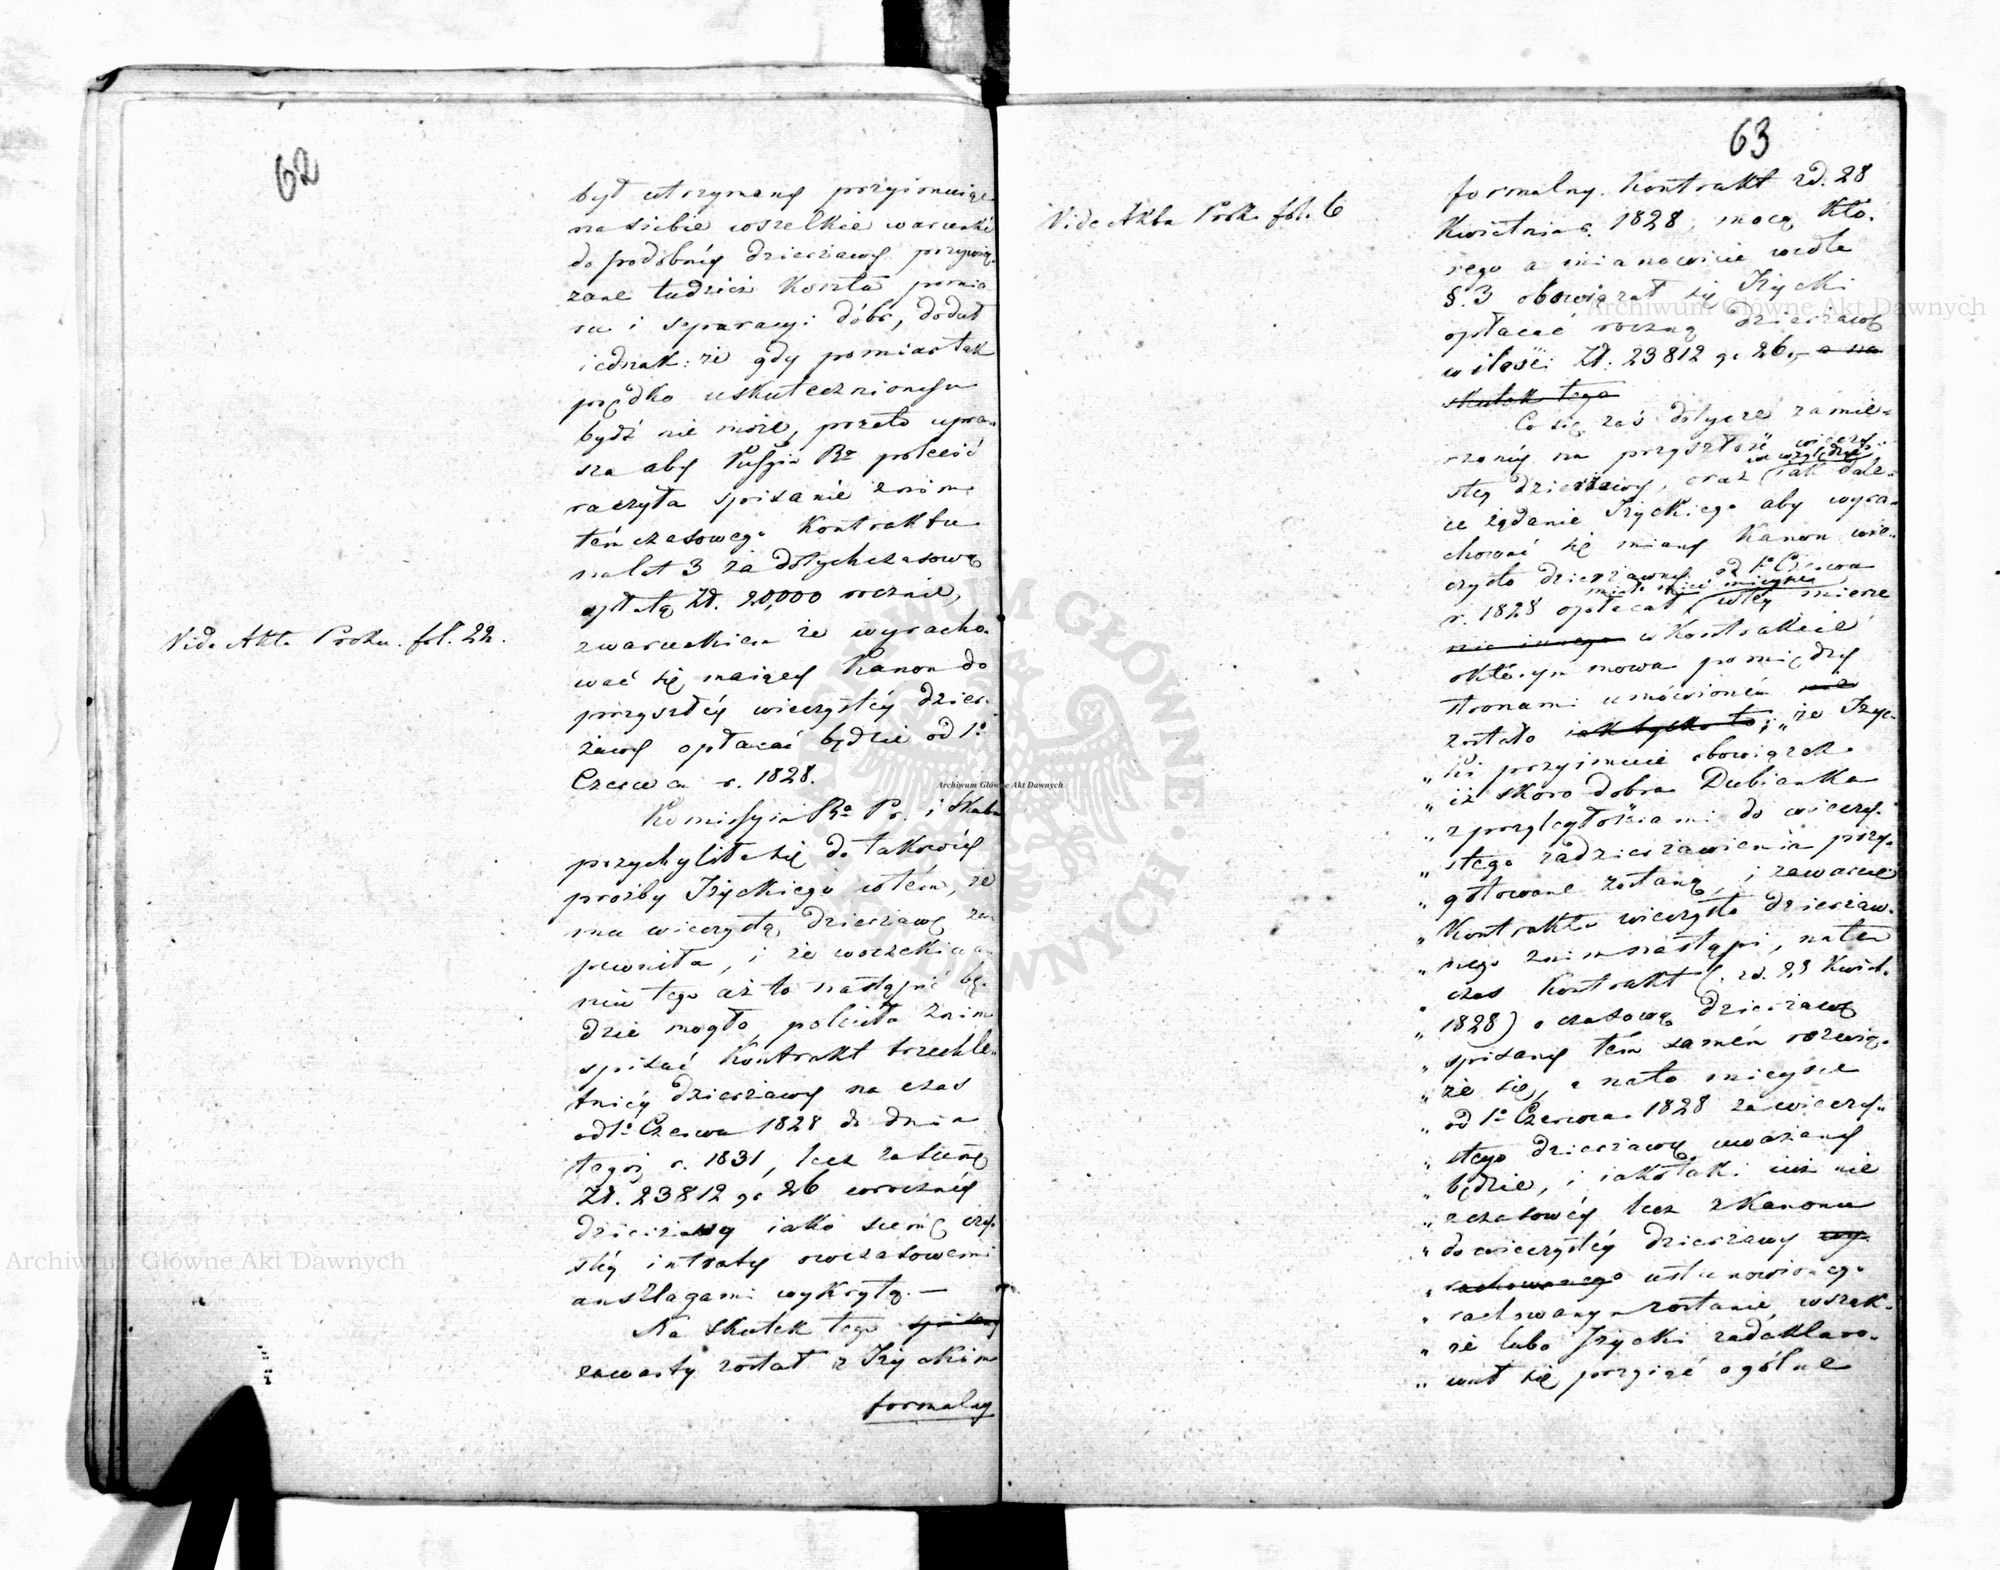 62
był utrzymany przyjmuiąc
na siebie wszelkie warunki
do podobnéy dzierżawy przywią-
zane tudzież Koszta pomia
ru i separacyi dóbr, dodał
iednak: że gdy pomiar tak
prędko uskutecznionym
bydź nie może, przeto upra-
sza aby Kommissya Rz polecić
raczyła spisanie z nim
tém czasowego Kontraktu
na lat 3 za dotychczasową
opłatą Zł. 20,000 rocznie,
z warunkiem że wyracho-
wać się maiący Kanon do
przyszłéy wieczystéy dzier-
żawy opłacać będzie od 1o
Czerwca r. 1828.
Vide Akta Proku. fol. 22.
Komissyia Rz Pr. i Skarbu
przychyliła się do takowéy
prośby Iżyckiego w tém, że
mu wieczystą dzierżawę za-
pewniła, i że w oczekiwa-
niu tego aż to nastąpić bę-
dzie mogło, poleciła z nim
spisać Kontrakt trzechle-
tniéy dzierżawy na czas
od 1o Czerwca 1828 do dnia
tegoż r. 1831, lecz za sumę
Zł. 23812 gr 26 coroczněy
dzierżawy iako sumę czy-
stéy intraty owczasowemi
anszlagami wykrytą. —
Na skutek tego spisany
zawarty został z Iżyckim
formalny
63
Vide Akta Prok. fol. 6
formalny Kontrakt z d. 28
Kwietnia r. 1828, mocą któ-
rego a mianowicie wedle
§. 3 obowiązał się Iżycki
opłacać roczną dzierżawę
w ilości Zł. 23812 gr 26,- a na
skutek tego
Co się zaś dotycze zamie-
rzonéy na przyszłość wieczy-
stéy dzierżawy, oraz we względzie iak dale-
ce żądanie Iżyckiego aby wyra-
chować się miany Kanon wie-
czysto dzierżawny od 1o Czerwca
r. 1828 opłacał, miało mieć mieysce w téy mierze
nic innego w Kontrakcie
o którym mowa pomiędzy
stronami umówioném nie
zostało iak tylko to; „że Iżyc-
„ki przyimuie obowiązek
„iż skoro dobra Dubienka
„z przyległościami do wieczy-
„stego zadzierżawienia przy-
„gotowane zostaną, i zawarcie
„Kontraktu wieczysto dzierżaw-
„nego z nim nastąpi, naten
„czas Kontrakt (z d. 28 Kwiet.
„1828) o czasową dzierżawę
„spisany tém samém rozwią-
„że się, a na to mieysce
„od 1o Czerwca 1828 za wieczy-
„stego dzierżawcę uważany
„będzie, i iako taki iuż nie
„z czasowéy lecz z Kanonu
„do wieczystéy dzierżawy wy-
„rachowanego ustanowionego
„rachowanym zostanie, wszak-
„że lubo Iżycki zadeklaro-
„wał się przyiąć ogólne